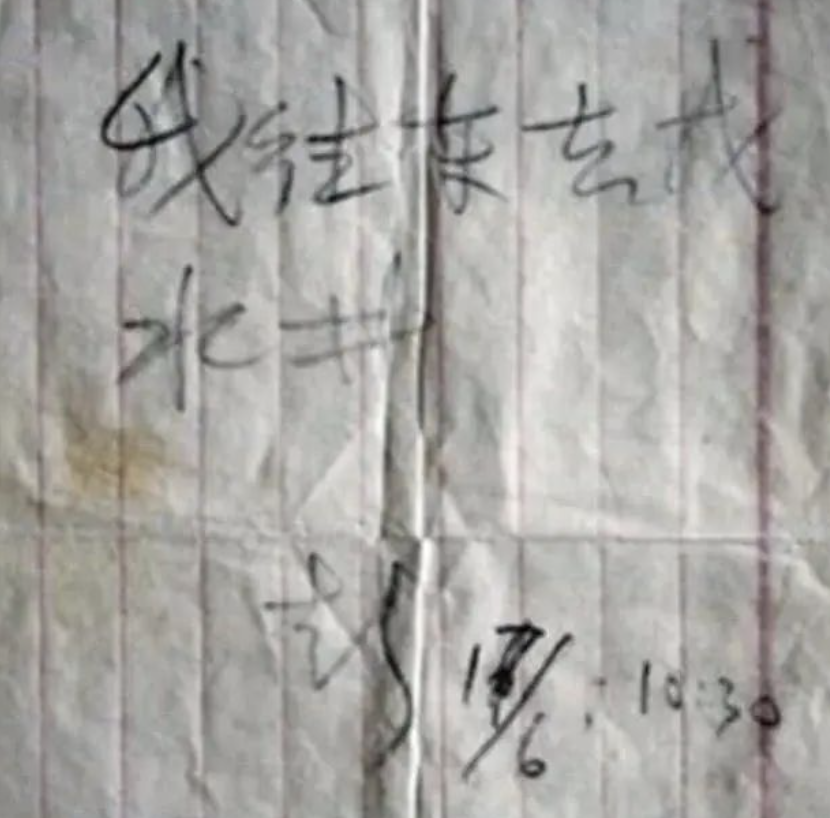 我往东去找
水井
彭
17/6:10:30